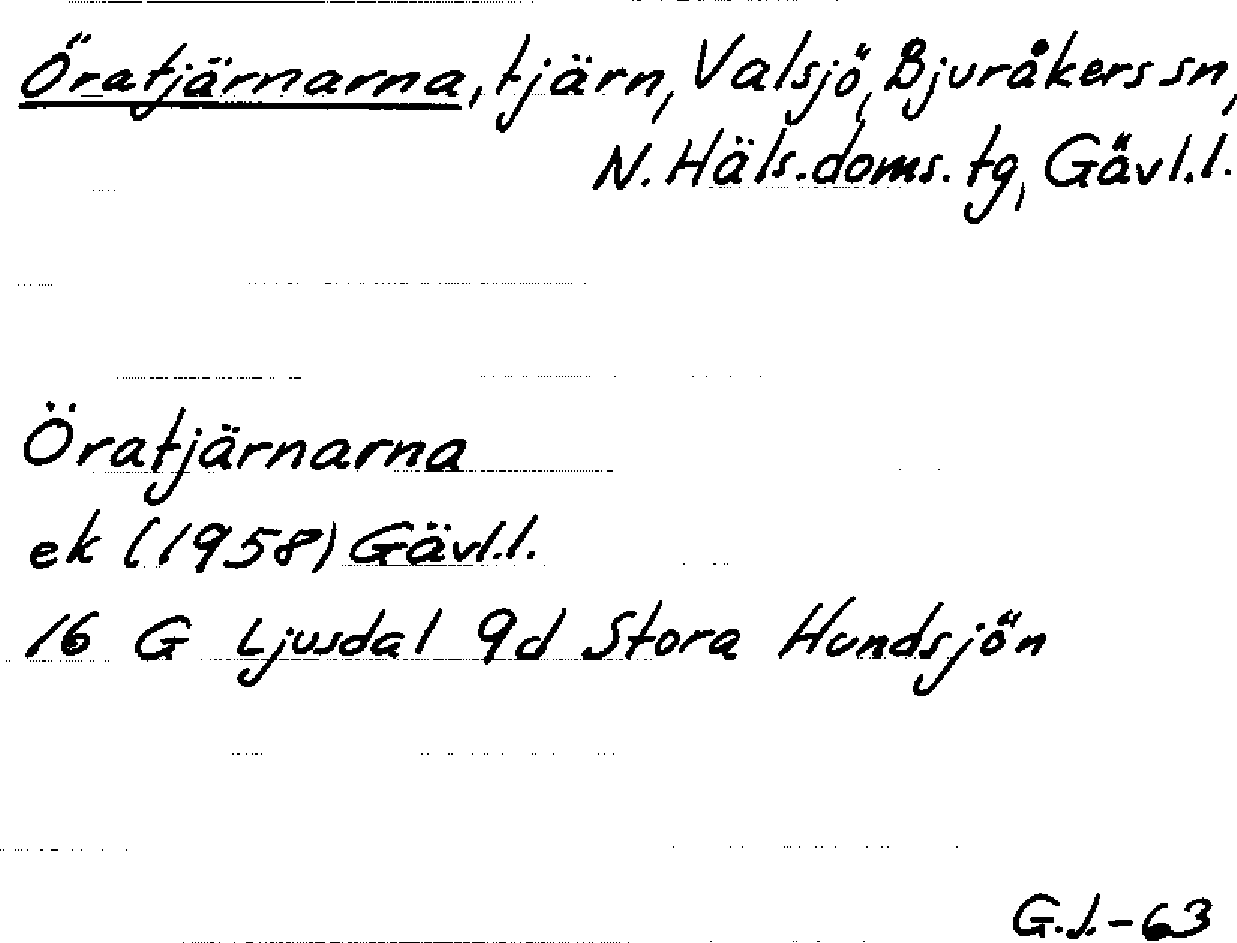 Öratjärnarna, tjärn, Valsjö, Bjuråkers sn,
N. Häls. doms. tg, Gävl.l.
Öratjärnarna
ek (1958) Gävl.l.
16 G Ljusdal 9d Stora Hundsjön
G.J.-63